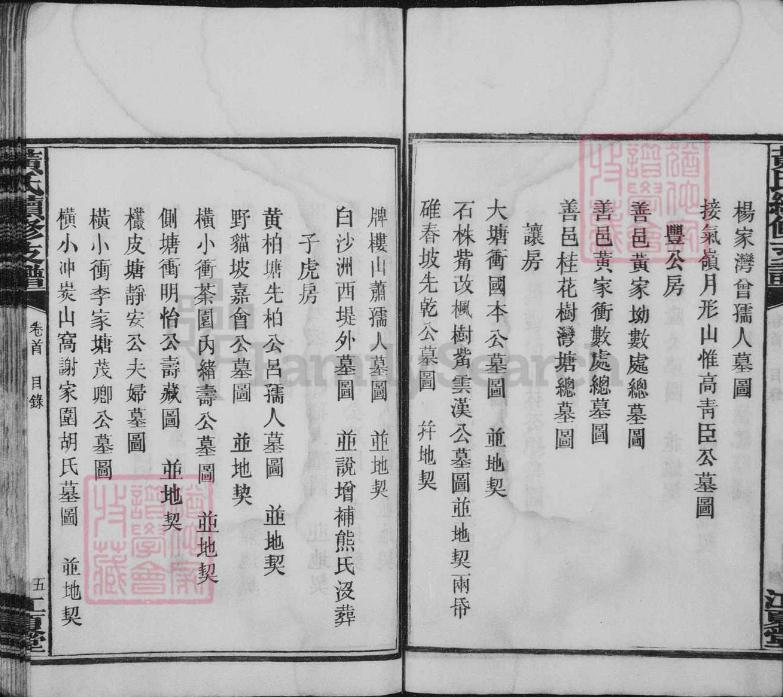 楊家灣曾孺人墓圖
接氣嶺月形山惟高靑臣公墓圖
豐公房
善邑黃家坳數處總墓圖
善邑黃家衝數處總墓圖
善邑桂花樹灣塘總墓圖
讓房
大塘衝國本公墓圖 並地契
石株觜改楓樹觜雲漢公墓圖並地契兩帋
碓舂坡先乾公墓圖 幷地契
牌樓山蕭孺人墓圖 並地契
白沙洲西堤外墓圖 並說增補熊氏沒葬
子虎房
黃柏塘先柏公呂孺人墓圖 並地契
野貓坡嘉會公墓圖 並地契
橫小衝茶園內緒壽公墓圖 並地契
側塘衝明怡公壽藏圖 並地契
欔皮塘靜安公夫婦墓圖
橫小衝李家塘茂卿公墓圖
橫小冲炭山窩謝家園胡氏墓圖 並地契
黃氏續修支譜
卷首 目錄
五
江夏堂
HamrySearch
譜學會
收藏